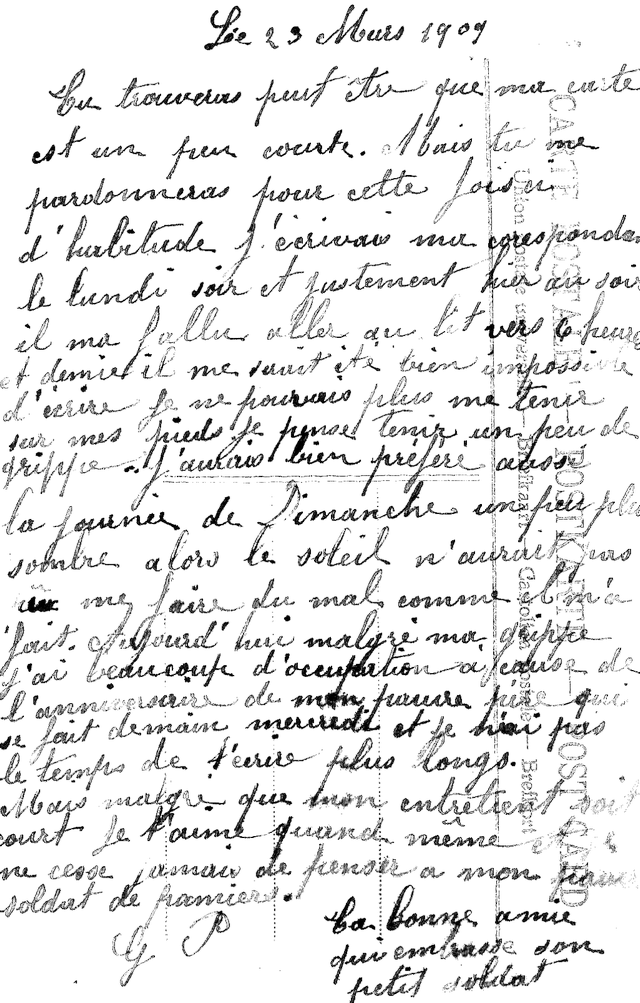 Le 23 Mars 1909
Tu trouveras peut être que ma carte
est un peu courte. Mais tu me
pardonneras pour cette fois ci
d'habitude j'écrivais ma coresponda
le lundi soir et justement hier au soir
il ma fallu aller au lit vers 6 heures
et demie il me serait été bien impossible
d'écrire je ne pouvais plus me tenir
sur mes pieds je pense tenir un peu de
grippe. J'aurais bien préféré aussi
la journée de Dimanche un peu plus
sombre alors le soleil n'aurait pas
me faire du mal comme l'm'a
fait. Aujourd'hui malgré ma grippe
j'ai beaucoup d'occupation a cause de
l'anniversaire de mon pauvre père qui
se fait demain mercredi et je n'ai pas
le temps de t'écrire plus longs.
Mais malgré que mon entretient soit
court je t'aime quand même et je
ne cesse jamais de penser a mon pauvre
soldat de pamiers.
G P
Ta bonne amie
qui embrasse son
petit soldat
CARTE POSTALE — POSTKARTE — POST CARD
Union postale universelle — Briefkaart — Cartolina postale — Brefkort